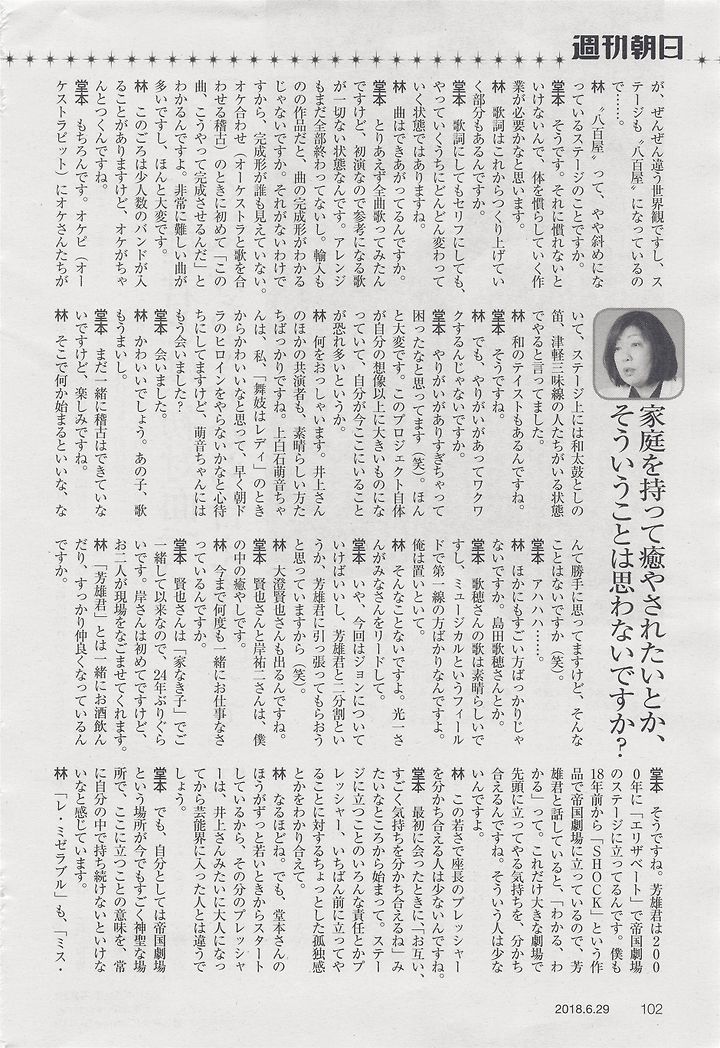 週刊朝日
家庭を持って癒やされたいとか、
そういうことは思わないですか?
が、ぜんぜん違う世界観ですし、ス
テージも〝八百屋〟になっているの
で……。
林 〝八百屋〟って、やや斜めにな
っているステージのことですか。
堂本 そうです。それに慣れないと
いけないんで、体を慣らしていく作
業が必要かなと思います。
林 歌詞はこれからつくり上げてい
く部分もあるんですか。
堂本 歌詞にしてもセリフにしても、
やっていくうちにどんどん変わって
いく状態ではありますね。
林 曲はできあがってるんですか。
堂本 とりあえず全曲歌ってみたん
ですけど、初演なので参考になる歌
が一切ない状態なんです。アレンジ
もまだ全部終わってないし。輸入も
のの作品だと、曲の完成形がわかる
じゃないですか。それがないわけで
すから、完成形が誰も見えていない。
オケ合わせ(オーケストラと歌を合
わせる稽古)のときに初めて「この
曲、こうやって完成させるんだ」と
わかるんですよ。非常に難しい曲が
多いですし、ほんと大変です。
林 このごろは少人数のバンドが入
ることがありますけど、オケがちゃ
んとつくんですね。
堂本 もちろんです。オケピ(オー
ケストラピット)にオケさんたちが
いて、ステージ上には和太鼓としの
笛、津軽三味線の人たちがいる状態
でやると言ってました。
林 和のテイストもあるんですね。
堂本 そうですね。
林 でも、やりがいがあってワクワ
クするんじゃないですか。
堂本 やりがいがありすぎちゃって
困ったなと思ってます(笑)。ほん
と大変です。このプロジェクト自体
が自分の想像以上に大きいものにな
っていて、自分が今ここにいること
が恐れ多いというか。
林 何をおっしゃいます。井上さん
のほかの共演者も、素晴らしい方た
ちばっかりですね。上白石萌音ちゃ
んは、私、「舞妓はレディ」のとき
からかわいいなと思って、早く朝ド
ラのヒロインをやらないかなと心待
ちにしてますけど、萌音ちゃんには
もう会いました?
堂本 会いました。
林 かわいいでしょう。あの子、歌
もうまいし。
堂本 まだ一緒に稽古はできていな
いですけど、楽しみですね。
林 そこで何か始まるといいな、な
んて勝手に思ってますけど、そんな
ことはないですか(笑)。
堂本 アハハハ……。
林 ほかにもすごい方ばっかりじゃ
ないですか。島田歌穂さんとか。
堂本 歌穂さんの歌は素晴らしいで
すし、ミュージカルというフィール
ドで第一線の方ばかりなんですよ。
俺は置いといて。
林 そんなことないですよ。光一さ
んがみなさんをリードして。
堂本 いや、今回はジョンについて
いけばいいし、芳雄君と二分割とい
うか、芳雄君に引っ張ってもらおう
と思っていますから(笑)。
林 大澄賢也さんも出るんですね。
堂本 賢也さんと岸祐二さんは、僕
の中の癒やしです。
林 今まで何度も一緒にお仕事なさ
っているんですか。
堂本 賢也さんは「家なき子」でご
一緒して以来なので、24年ぶりぐら
いです。岸さんは初めてですけど、
お二人が現場をなごませてくれます。
林 「芳雄君」とは一緒にお酒飲ん
だり、すっかり仲良くなっているん
ですか。
堂本 そうですね。芳雄君は200
0年に「エリザベート」で帝国劇場
のステージに立ってるんです。僕も
18年前から「SHOCK」という作
品で帝国劇場に立っているので、芳
雄君と話していると、「わかる、わ
かる」って。これだけ大きな劇場で
先頭に立ってやる気持ちを、分かち
合えるんですね。そういう人は少な
いんですよ。
林 この若さで座長のプレッシャー
を分かち合える人は少ないんですね。
堂本 最初に会ったときに、「お互い、
すごく気持ちを分かち合えるね」み
たいなところから始まって。ステー
ジに立つことのいろんな責任とかプ
レッシャー、いちばん前に立ってや
ることに対するちょっとした孤独感
とかをわかり合えて。
林 なるほどね。でも、堂本さんの
ほうがずっと若いときからスタート
しているから、その分のプレッシャ
ーは、井上さんみたいに大人になっ
てから芸能界に入った人とは違うで
しょう。
堂本 でも、自分としては帝国劇場
という場所が今でもすごく神聖な場
所で、ここに立つことの意味を、常
に自分の中で持ち続けないといけな
いなと感じています。
林 「レ・ミゼラブル」も、「ミス・
2018.6.29
102